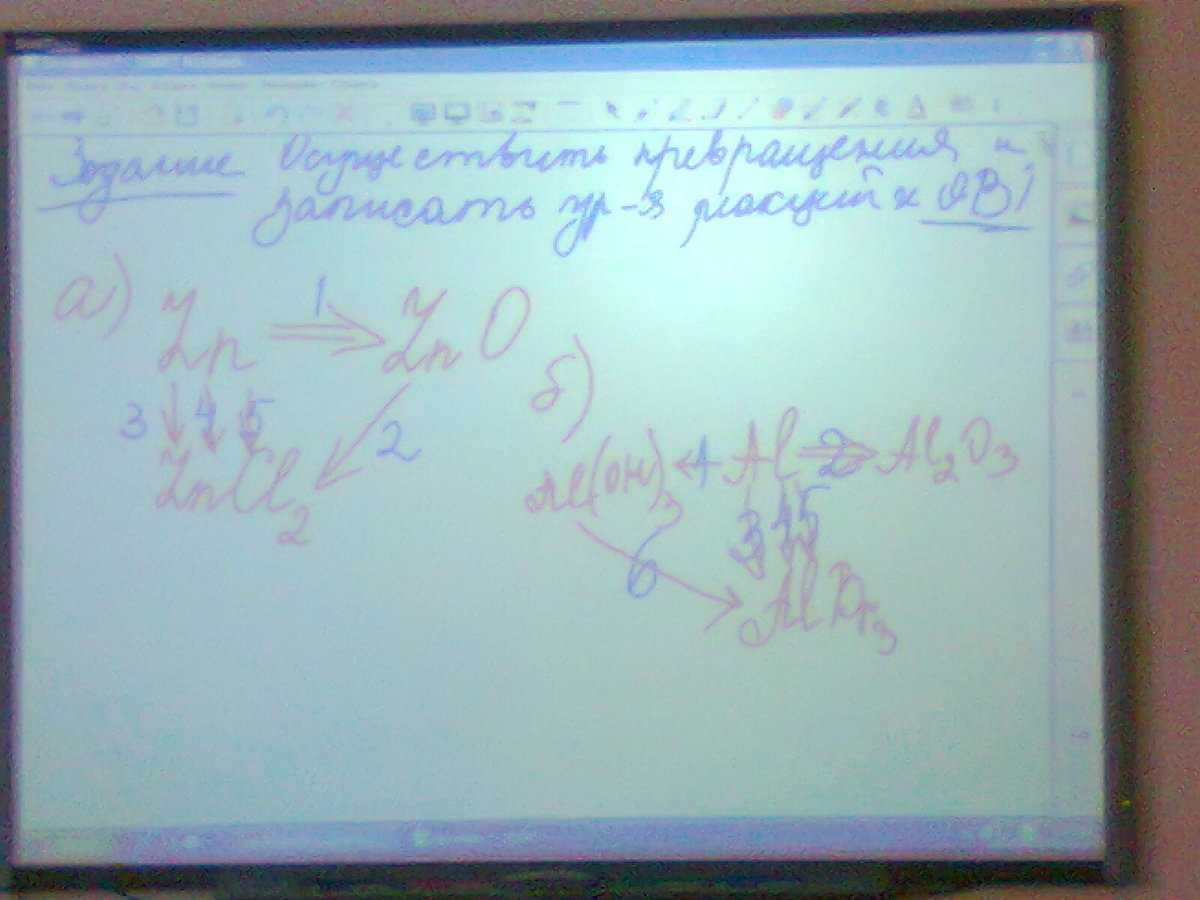 Задание Осуществить превращения и
записать ур-я реакций к ОВР
а) Zn 1 ZnO
3 4 5 2
ZnCl2
б)
Al(OH)3 1 Al 2 Al2O3
3 4 5
6
AlBr3